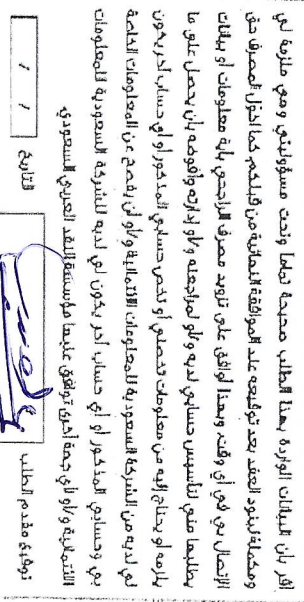 أقر بأن البيانات الواردة بهذا الطلب صحيحة تماماً وتحت مسؤوليتي وهي ملزمة لي
ومكملة لبنود العقد بعد توقيعه عند الموافقة النهائية من قبلكم كما أخول المصرف حق
الإتصال بي في أي وقت. وبهذا أوافق على تزويد مصرف الراجحي بأية معلومات أو بيانات
يطلبها مني لتأسيس حسابي لديه و/أو لمراجعته و/أو إدارته وأفوضه بأن يحصل على ما
يلزمه أو يحتاج إليه من معلومات تخصني أو تخص حسابي المذكور أو أي حساب آخر يكون
لي لديه من الشركة السعودية للمعلومات الائتمانية و/أو أن يفصح عن المعلومات الخاصة
بي وبحسابي المذكور أو أي حساب آخر يكون لي لديه للشركة السعودية للمعلومات
الائتمانية و/أو لأي جهة أخرى توافق عليها مؤسسة النقد العربي السعودي
توقيع مقدم الطلب
التاريخ / /